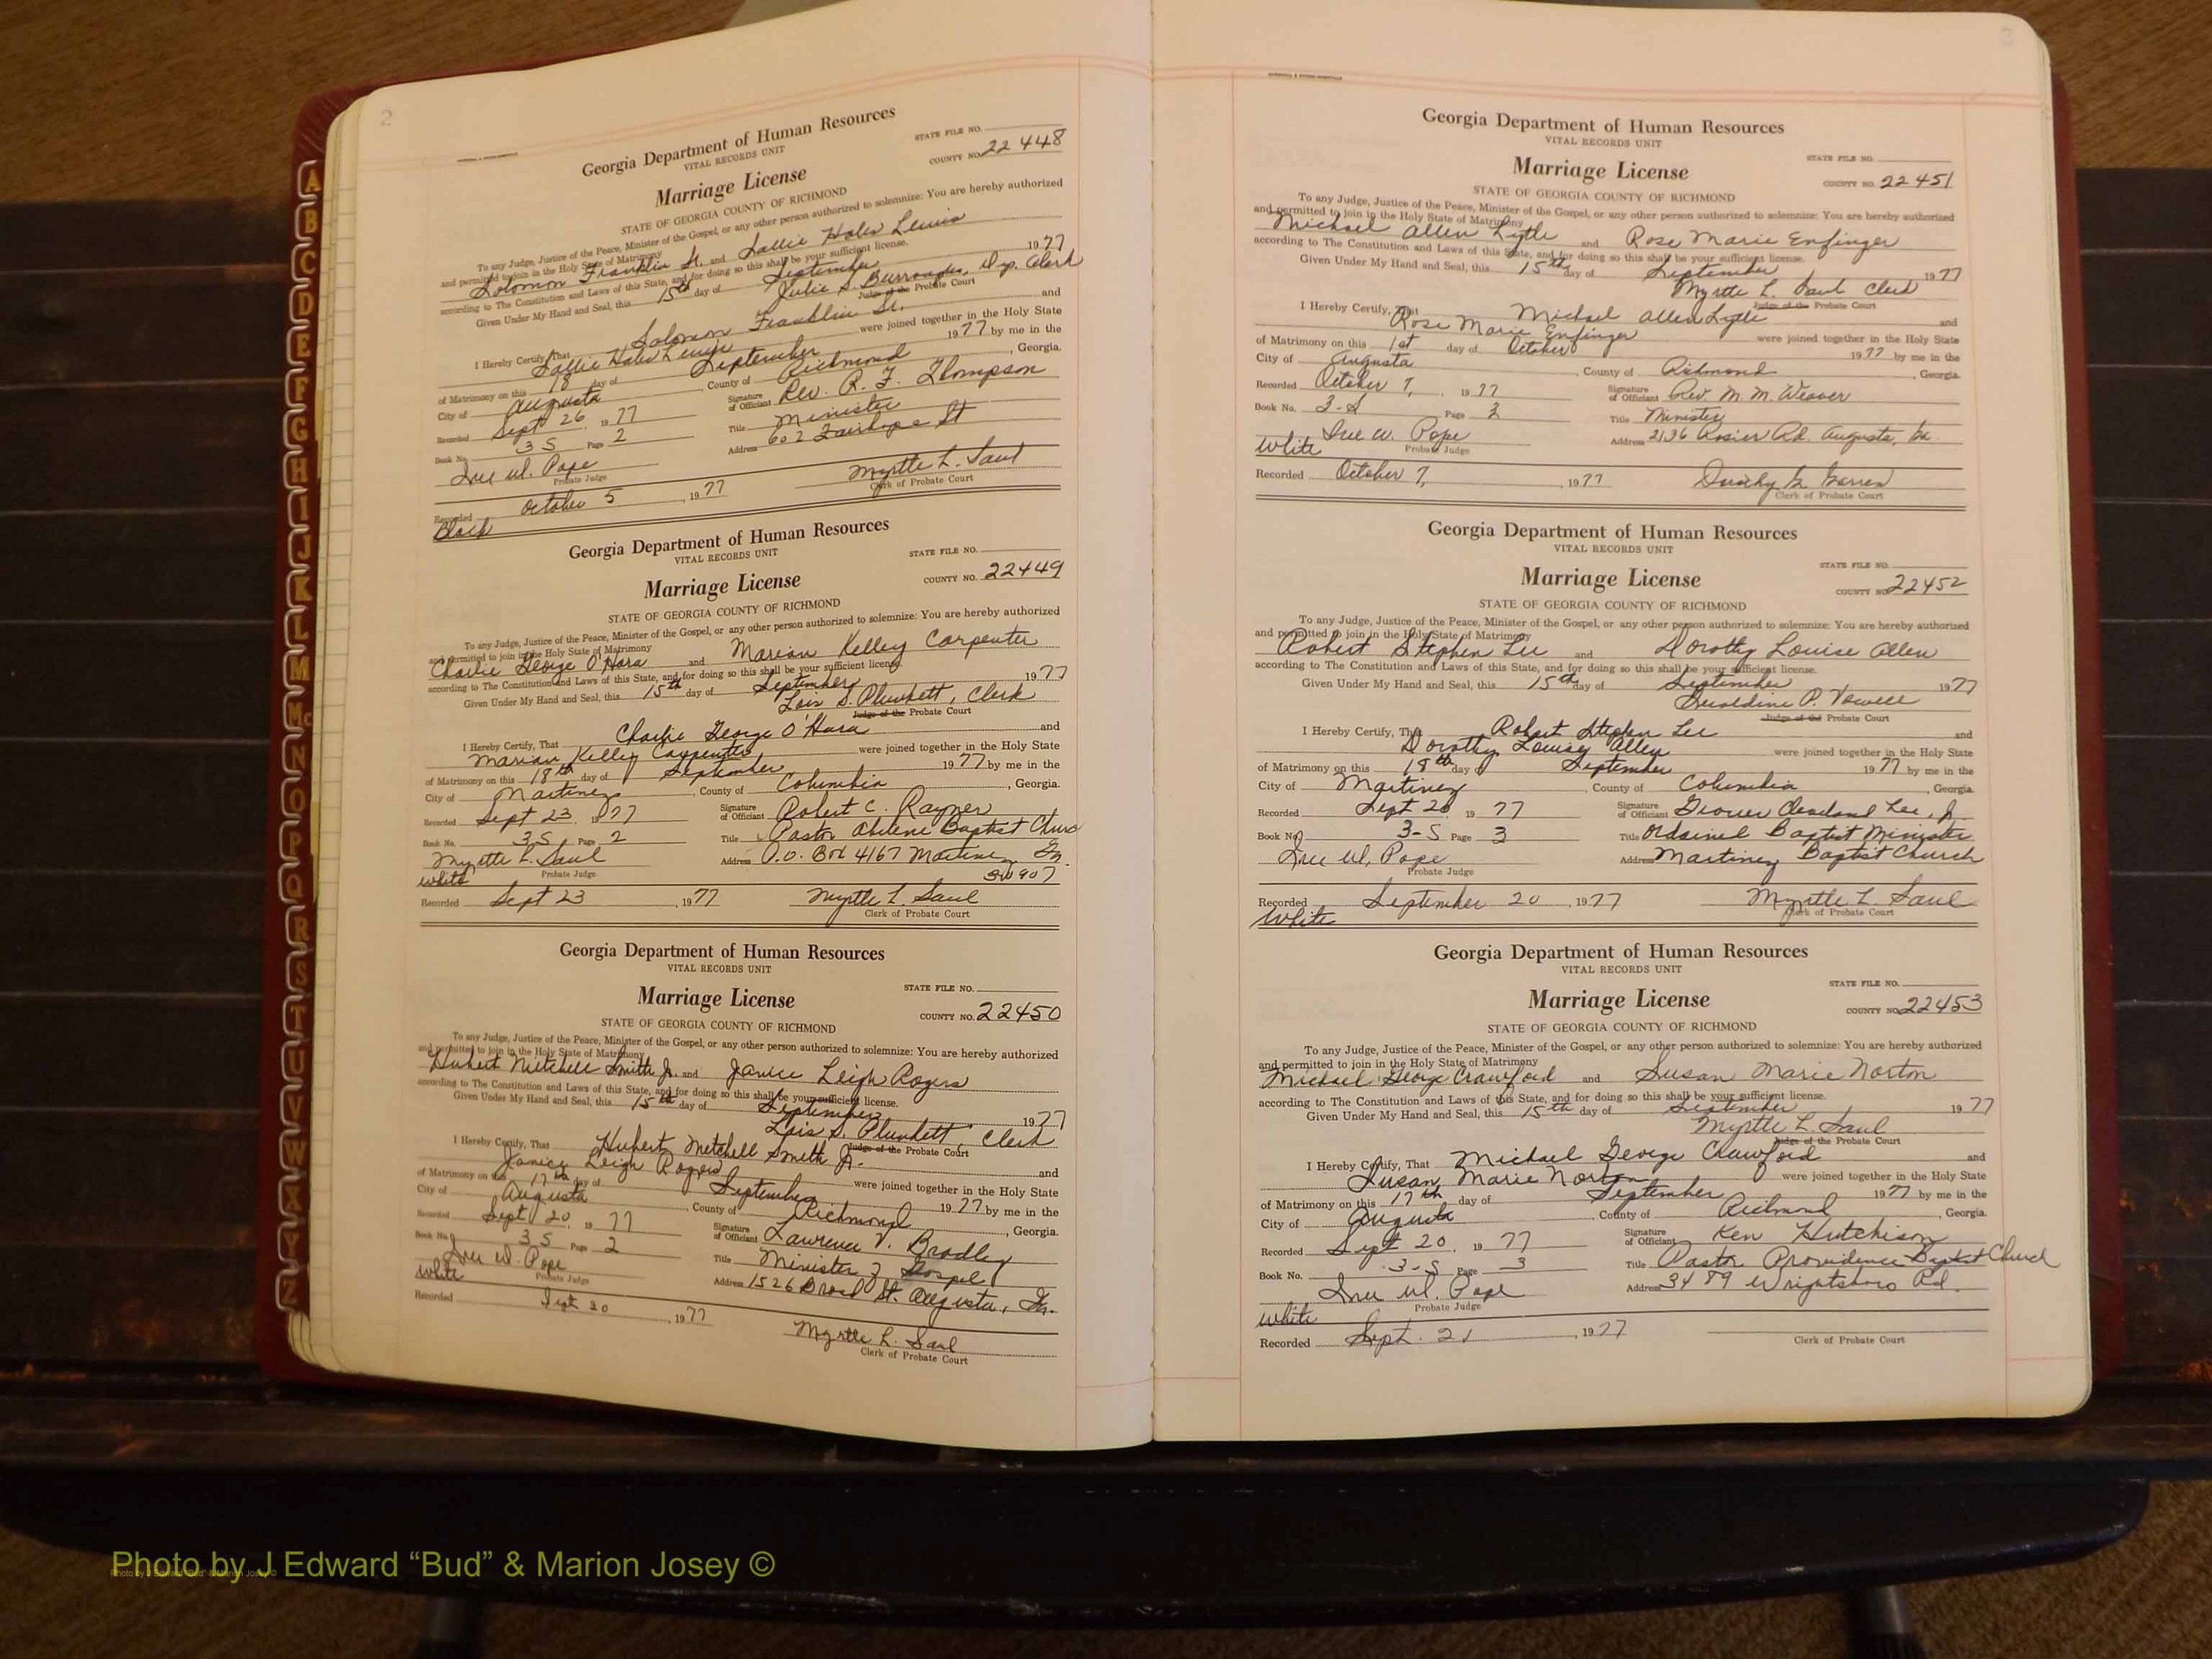 2
Georgia Department of Human Resources
VITAL RECORDS UNIT
STATE FILE NO.
COUNTY NO. 22448
Marriage License
STATE OF GEORGIA COUNTY OF RICHMOND
To any Judge, Justice of the Peace, Minister of the Gospel, or any other person authorized to solemnize: You are hereby authorized
and permitted to join in the Holy State of Matrimony
Solomon Franklin Sr. and Sallie Holes Lewis
according to The Constitution and Laws of this State, and for doing so this shall be your sufficient license.
Given Under My Hand and Seal, this 15th day of September 1977
Julie S. Burroughs, Dep. Clerk
Judge of the Probate Court
I Hereby Certify, That Solomon Franklin Sr. and
Sallie Holes Lewis were joined together in the Holy State
of Matrimony on this 18 day of September 1977 by me in the
City of Augusta, County of Richmond, Georgia.
Recorded Sept 26, 1977
Signature of Officiant Rev. R. F. Thompson
Book No. 3S Page 2
Title Minister
Address 602 Fairhope St
Ire W. Pope
Probate Judge
Recorded October 5, 1977
Myrtle L. Saul
Clerk of Probate Court
Black
Georgia Department of Human Resources
VITAL RECORDS UNIT
STATE FILE NO.
COUNTY NO. 22449
Marriage License
STATE OF GEORGIA COUNTY OF RICHMOND
To any Judge, Justice of the Peace, Minister of the Gospel, or any other person authorized to solemnize: You are hereby authorized
and permitted to join in the Holy State of Matrimony
Charlie George O'Hara and Marian Kelley Carpenter
according to The Constitution and Laws of this State, and for doing so this shall be your sufficient license.
Given Under My Hand and Seal, this 15th day of September 1977
Lois S. Plunkett, Clerk
Judge of the Probate Court
I Hereby Certify, That Charlie George O'Hara and
Marian Kelley Carpenter were joined together in the Holy State
of Matrimony on this 18th day of September 1977 by me in the
City of Martinez, County of Columbia, Georgia.
Recorded Sept 23, 1977
Signature of Officiant Robert C. Rayner
Book No. 3S Page 2
Title Pastor Abilene Baptist Church
Address P.O. Box 4167 Martinez Ga.
30907
Myrtle L. Saul
Probate Judge
white
Recorded Sept 23, 1977
Myrtle L. Saul
Clerk of Probate Court
Georgia Department of Human Resources
VITAL RECORDS UNIT
STATE FILE NO.
COUNTY NO. 22450
Marriage License
STATE OF GEORGIA COUNTY OF RICHMOND
To any Judge, Justice of the Peace, Minister of the Gospel, or any other person authorized to solemnize: You are hereby authorized
and permitted to join in the Holy State of Matrimony
Hubert Mitchell Smith Jr. and Janice Leigh Rogers
according to The Constitution and Laws of this State, and for doing so this shall be your sufficient license.
Given Under My Hand and Seal, this 15th day of September 1977
Lois S. Plunkett, Clerk
Judge of the Probate Court
I Hereby Certify, That Hubert Metchell Smith Jr. and
Janice Leigh Rogers were joined together in the Holy State
of Matrimony on this 17th day of September 1977 by me in the
City of Augusta, County of Richmond, Georgia.
Recorded Sept 20, 1977
Signature of Officiant Lawrence V. Bradley
Book No. 3S Page 2
Title Minister of Gospel
Address 1526 Broad St. Augusta, Ga.
Ire W. Pope
Probate Judge
white
Recorded Sept 20, 1977
Myrtle L. Saul
Clerk of Probate Court
3
Georgia Department of Human Resources
VITAL RECORDS UNIT
STATE FILE NO.
COUNTY NO. 22451
Marriage License
STATE OF GEORGIA COUNTY OF RICHMOND
To any Judge, Justice of the Peace, Minister of the Gospel, or any other person authorized to solemnize: You are hereby authorized
and permitted to join in the Holy State of Matrimony
Michael Allen Lytle and Rose Marie Enfinger
according to The Constitution and Laws of this State, and for doing so this shall be your sufficient license.
Given Under My Hand and Seal, this 15th day of September 1977
Myrtle L. Saul Clerk
Judge of the Probate Court
I Hereby Certify, That Michael Allen Lytle and
Rose Marie Enfinger were joined together in the Holy State
of Matrimony on this 1st day of October 1977 by me in the
City of Augusta, County of Richmond, Georgia.
Recorded October 7, 1977
Signature of Officiant Rev. M. M. Weaver
Book No. 3-S Page 3
Title Minister
Address 2136 Rosier Rd. Augusta, Ga.
Ire W. Pope
Probate Judge
white
Recorded October 7, 1977
Clerk of Probate Court
Georgia Department of Human Resources
VITAL RECORDS UNIT
STATE FILE NO.
COUNTY NO. 22452
Marriage License
STATE OF GEORGIA COUNTY OF RICHMOND
To any Judge, Justice of the Peace, Minister of the Gospel, or any other person authorized to solemnize: You are hereby authorized
and permitted to join in the Holy State of Matrimony
Robert Stephen Lee and Dorothy Louise Allen
according to The Constitution and Laws of this State, and for doing so this shall be your sufficient license.
Given Under My Hand and Seal, this 15th day of September 1977
Geraldine P. Vowell
Judge of the Probate Court
I Hereby Certify, That Robert Stephen Lee and
Dorothy Louise Allen were joined together in the Holy State
of Matrimony on this 18th day of September 1977 by me in the
City of Martinez, County of Columbia, Georgia.
Recorded Sept 20 1977
Signature of Officiant Grover Cleveland Lee, Jr.
Book No. 3-S Page 3
Title Ordained Baptist Minister
Address Martinez Baptist Church
Ire W. Pope
Probate Judge
Recorded September 20, 1977
Myrtle L. Saul
Clerk of Probate Court
White
Georgia Department of Human Resources
VITAL RECORDS UNIT
STATE FILE NO.
COUNTY NO. 22453
Marriage License
STATE OF GEORGIA COUNTY OF RICHMOND
To any Judge, Justice of the Peace, Minister of the Gospel, or any other person authorized to solemnize: You are hereby authorized
and permitted to join in the Holy State of Matrimony
Michael George Crawford and Susan Marie Norton
according to The Constitution and Laws of this State, and for doing so this shall be your sufficient license.
Given Under My Hand and Seal, this 15th day of September 1977
Myrtle L. Saul
Judge of the Probate Court
I Hereby Certify, That Michael George Crawford and
Susan Marie Norton were joined together in the Holy State
of Matrimony on this 17th day of September 1977 by me in the
City of Augusta, County of Richmond, Georgia.
Recorded Sept 20, 1977
Signature of Officiant Ken Hutchison
Book No. 3-S Page 3
Title Pastor Providence Baptist Church
Address 3479 Wrightsboro Rd.
Ire W. Pope
Probate Judge
white
Recorded Sept. 21, 1977
Clerk of Probate Court
A
B
C
D
E
F
G
H
I
J
K
L
M
Mc
N
O
P
Q
R
S
T
U
V
W
X
Y
Z
Photo by J Edward “Bud” & Marion Josey ©
Photo by J Edward “Bud” & Marion Josey ©